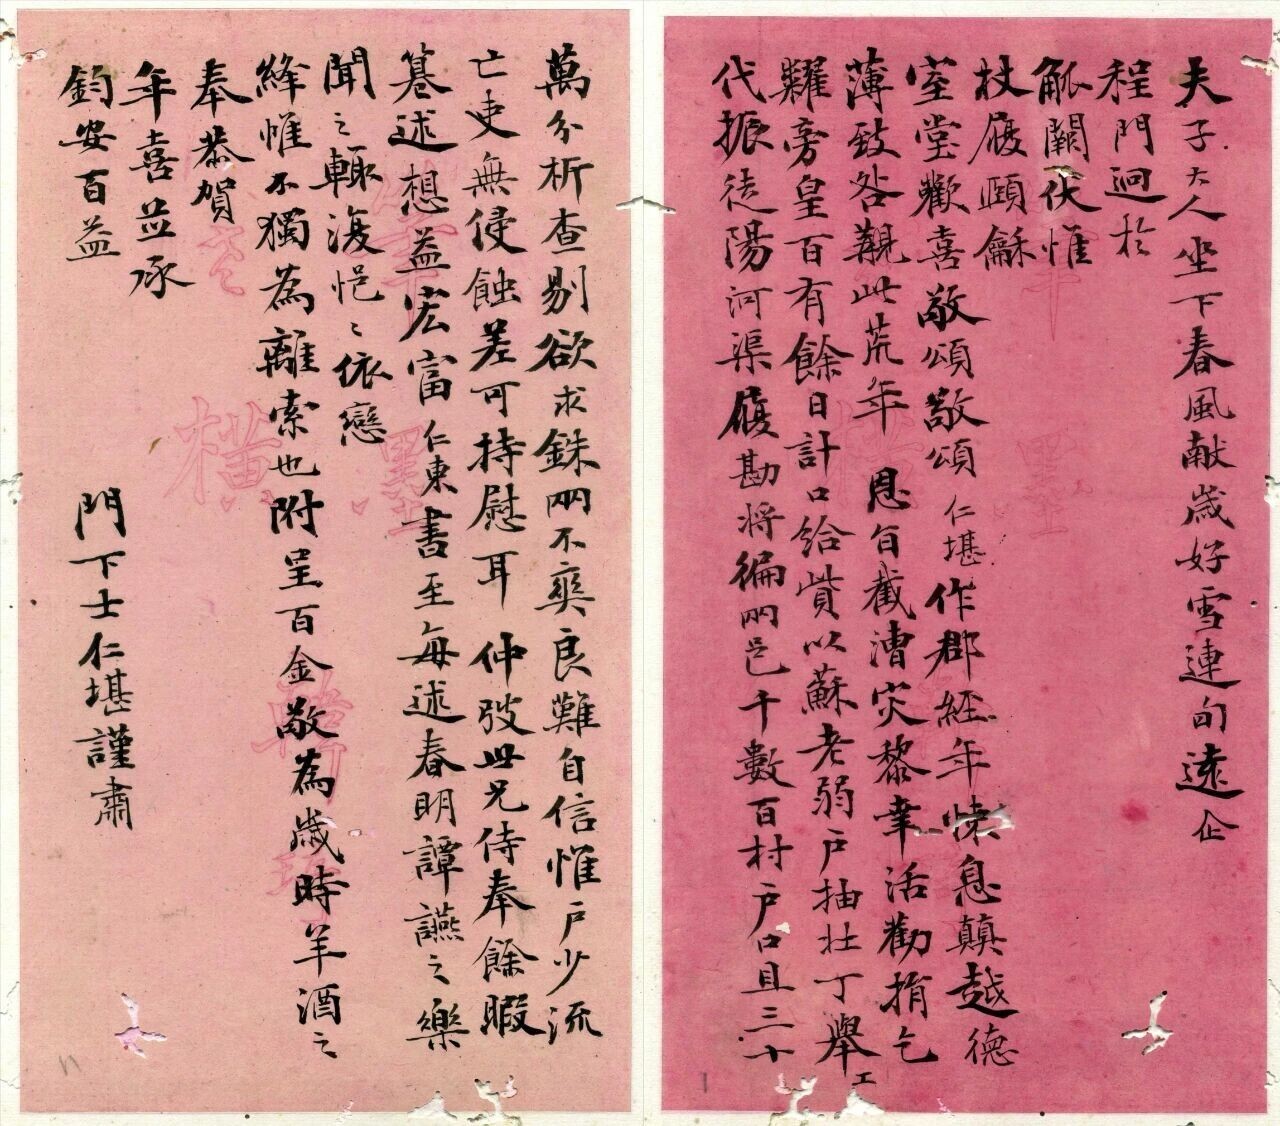 夫子大人坐下春風献歲好雪連旬遠企
程門迥於
觚闕伏惟
杖履頤龢
室堂歡喜敬頌敬頌仁堪作郡經年悚息顛越德
薄致咎觀此荒年恩旨截漕灾黎幸活勸捐乞
糶旁皇百有餘日計口給貲以蘇老弱戶抽壯丁舉工
代振徒陽河渠履勘將徧兩邑千數百村戶口且三十
萬分析查剔欲求銖兩不爽良難自信惟戶少流
亡吏無侵蝕差可持慰耳仲弢世兄侍奉餘暇
篹述想益宏富仁東書至每述春明譚讌之樂
聞之輙復悒悒依戀
絳惟不獨為離索也附呈百金敬為歲時羊酒之
奉恭賀
年喜並承
鈞安百益
門下士仁堪謹肅